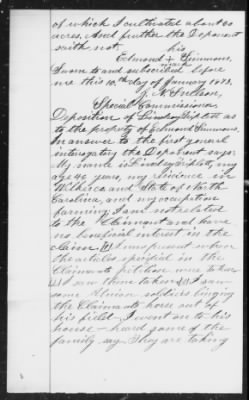 of which I cultivated about 60
acres. And further the Deponent
saith not.
his
Edmond X Simmons.
mark
Sworn to and subscribed before
me this 10th day of January 1878.
Special Commissioner
Deposition of Lindsey Triplett as
to the property of Edmond Simmons.
In answer to the first general
interrogatory the Deponent says:
My name is Lindsey Triplett, my
age 40 years, my residence in
Wilkes co. and State of North
Carolina, and my occupation
farming, I am not related
to the Claimant and have
no beneficial interest in the
claim. I was present when
the articles specified in the
Claimants petition were taken
I saw them taken I saw
some Union soldiers bringing
the Claimants horse out of
his field. I went on to his
house — heard some of the
family say They are taking